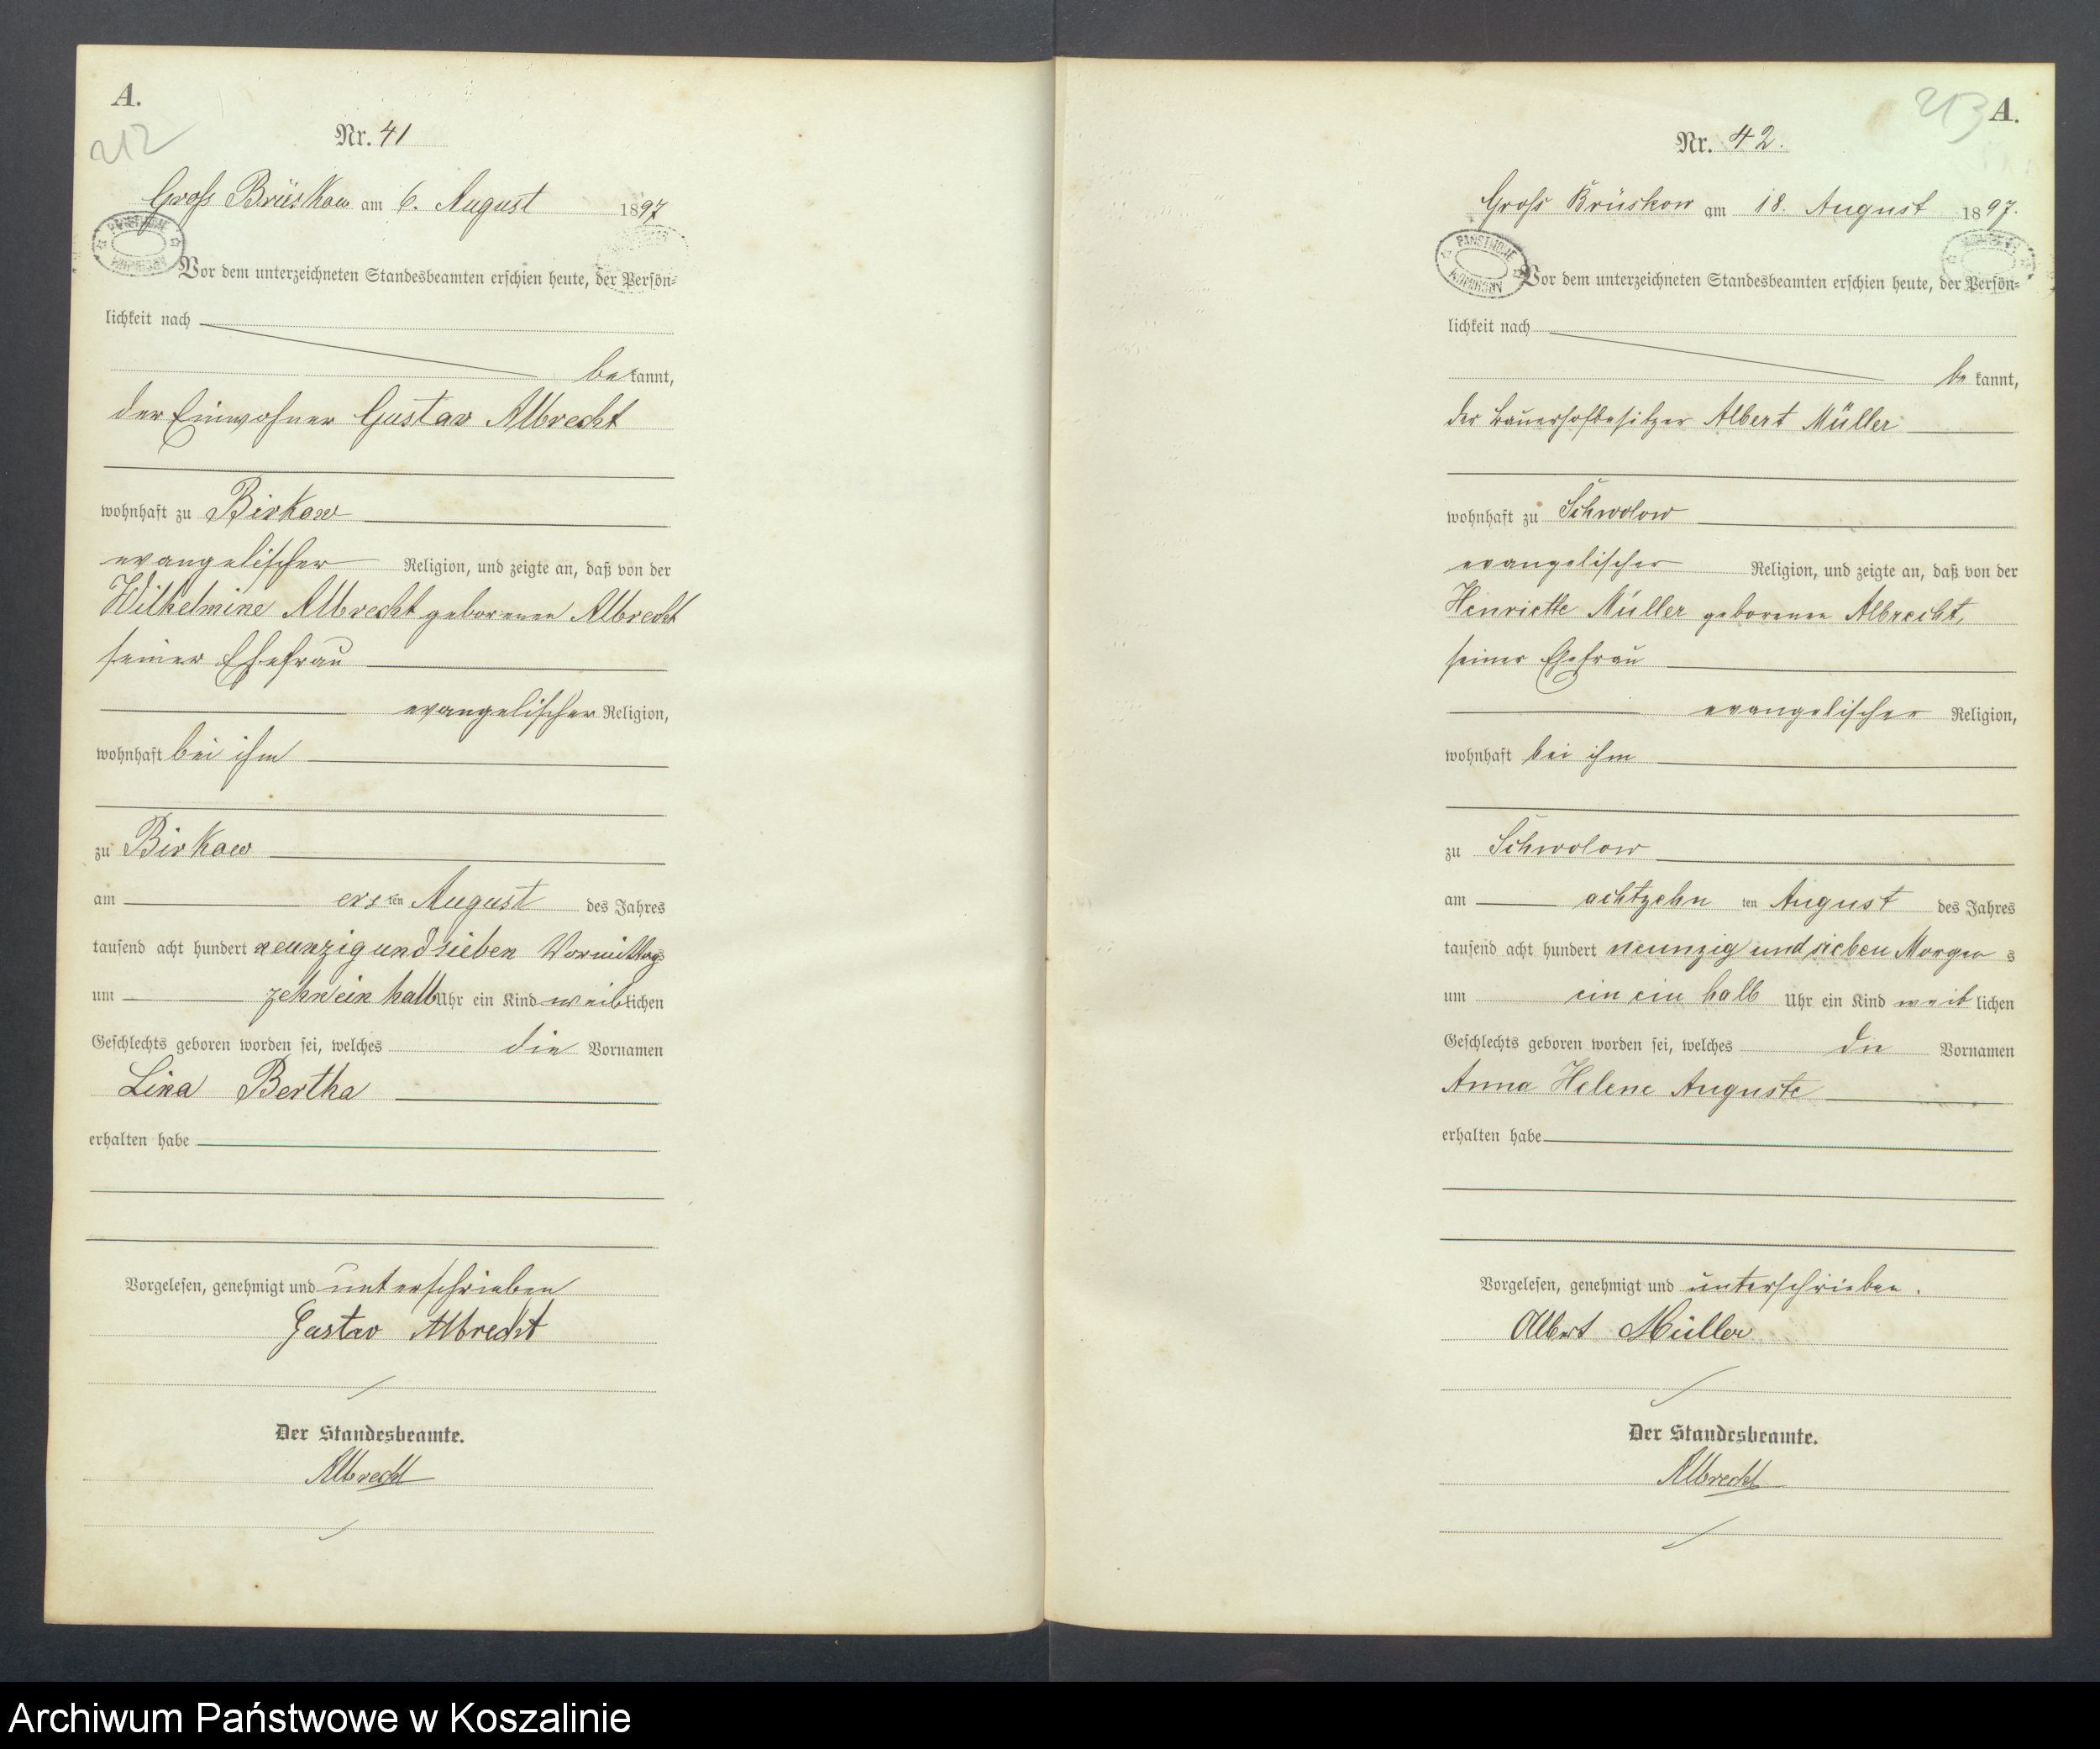 A.
212
Nr. 41
Gross Brüskow am 6. August 1897
PAŃSTWOWE ARCHIWUM
Vor dem unterzeichneten Standesbeamten erschien heute, der Persön=
lichkeit nach
bekannt,
der Einwohner Gustav Albrecht
wohnhaft zu Birkow
evangelischer Religion, und zeigte an, daß von der
Wilhelmine Albrecht geborenen Albrecht
seiner Ehefrau
evangelischer Religion,
wohnhaft bei ihm
zu Birkow
am ersten August des Jahres
tausend acht hundert neunzig und sieben Vormittags
um zehn ein halb Uhr ein Kind weiblichen
Geschlechts geboren worden sei, welches die Vornamen
Lina Bertha
erhalten habe
Vorgelesen, genehmigt und unterschrieben
Gustav Albrecht
Der Standesbeamte.
Albrecht
213
A.
Nr. 42.
Gross Brüskow am 18. August 1897.
PAŃSTWOWE ARCHIWUM
Vor dem unterzeichneten Standesbeamten erschien heute, der Persön=
lichkeit nach
bekannt,
der Bauerhofbesitzer Albert Müller
wohnhaft zu Schwolow
evangelischer Religion, und zeigte an, daß von der
Henriette Müller geborenen Albrecht,
seiner Ehefrau
evangelischer Religion,
wohnhaft bei ihm
zu Schwolow
am achtzehnten August des Jahres
tausend acht hundert neunzig und sieben Morgens
um ein ein halb Uhr ein Kind weiblichen
Geschlechts geboren worden sei, welches die Vornamen
Anna Helene Auguste
erhalten habe
Vorgelesen, genehmigt und unterschrieben.
Albert Müller
Der Standesbeamte.
Albrecht
Archiwum Państwowe w Koszalinie